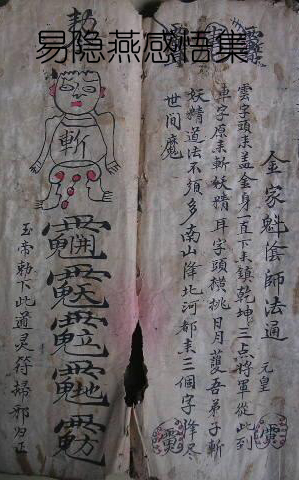 易隐燕感悟集
金家魁陰師法通
元皇
雲字頭來盖金身一直下來鎮乾坤三点將軍從此到
車字原來斬妖精耳字頭橫挑日月護吾弟子斬
妖精道法不須多南山降北河都來三個字降尽
世间魔
斬
玉帝勅下此道灵符掃邪归正